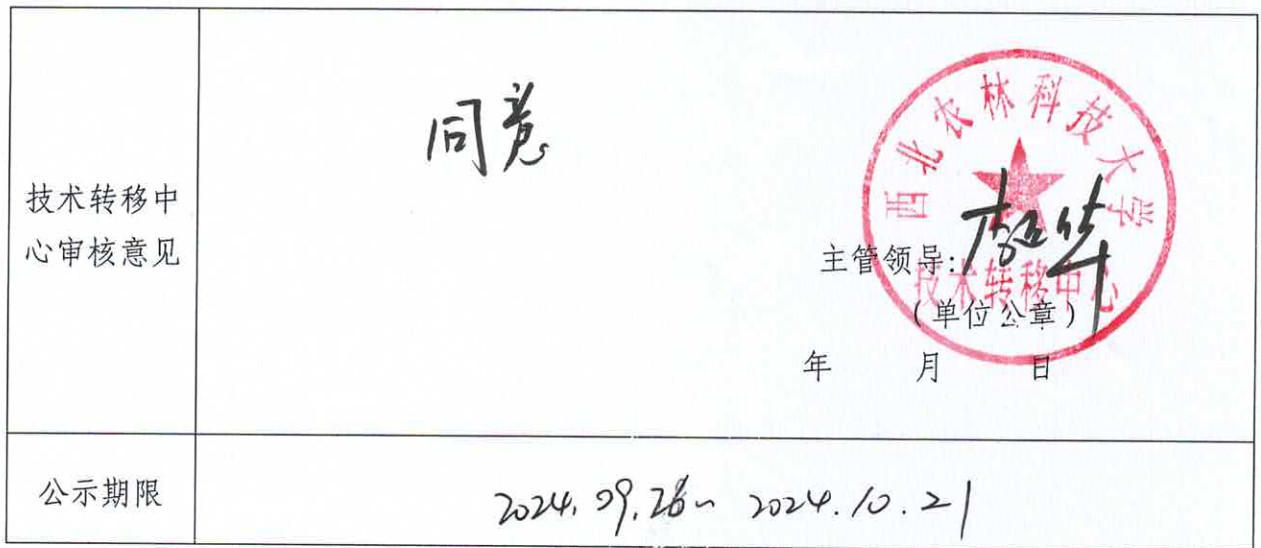 技术转移中
心审核意见
同意
西北农林科技大学
主管领导:
技术转移中心
(单位公章)
年 月 日
公示期限
2024.09.26~ 2024.10.21